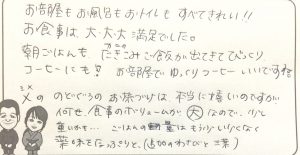 お部屋もお風呂もおトイレもすべてきれい!!
お食事は大・大・大満足でした。
朝ごはんも カニのたきこみご飯が出てきてびっくり
コーヒーにも! お部屋でゆっくりコーヒーいいですね
〆ののどぐろのお茶づけは本当に嬉しいのですが
何せ食事のボリュームが大なので、少し
重いかも… ごはんの量はもう少し少なく
薬味をたっぷりと、(追加のわさびと三葉)